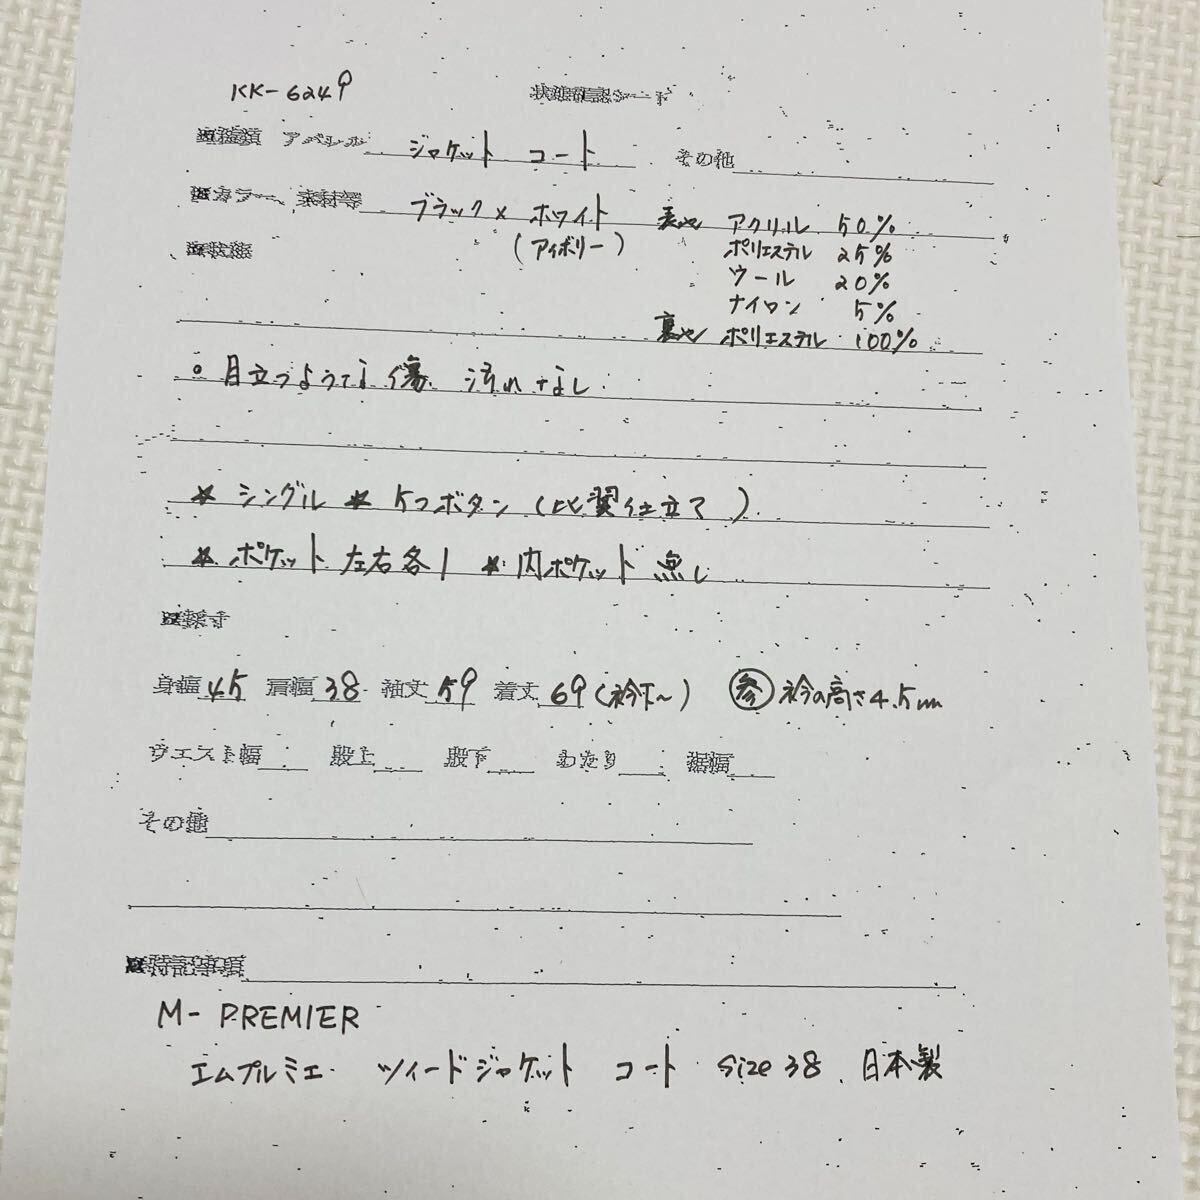 KK-6249
状態確認シート
■種類 アパレル ジャケット コート その他
■カラー、素材等 ブラック×ホワイト 表地 アクリル 50%
(アイボリー) ポリエステル 25%
■状態
ウール 20%
ナイロン 5%
裏地 ポリエステル 100%
○目立つような傷 汚れなし
★シングル ★5つボタン(比翼仕立て)
★ポケット 左右各1 ★内ポケット 無し
■採寸
身幅 45 肩幅 38 袖丈 59 着丈 69(衿下〜) 参 衿の高さ4.5cm
ウエスト幅 股上 股下 わたり 裾幅
その他
■特記事項
M-PREMIER
エムプルミエ ツィードジャケット コート size 38 日本製